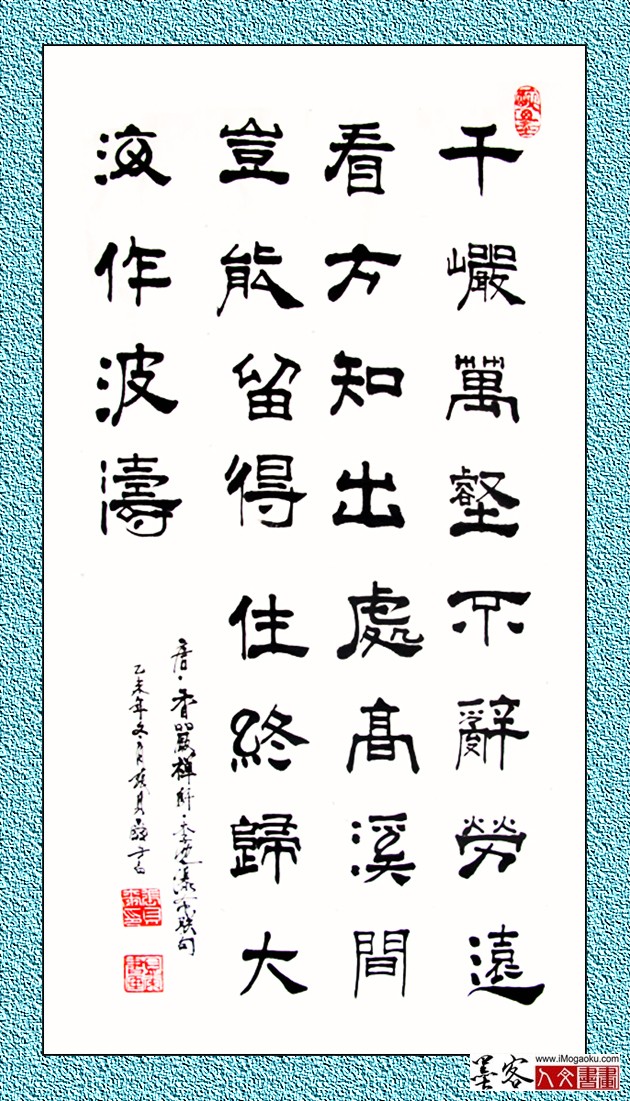 千巖萬壑不辭勞遠
看方知出處高溪間
豈能留得住終歸大
海作波濤
唐·香嚴禪師·李忱瀑布聯句
乙未年冬月張貝
墨客
www.iMogaoku.com
人文書畫